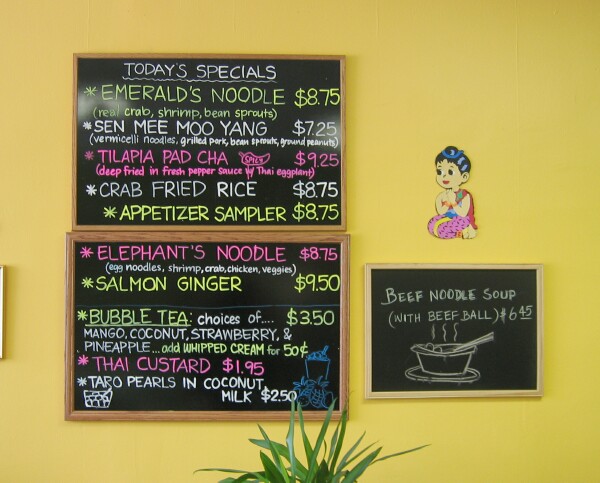 TODAY'S SPECIALS
* EMERALD'S NOODLE $8.75
(real crab, shrimp, bean sprouts)
* SEN MEE MOO YANG $7.25
(vermicelli noodles, grilled pork, bean sprouts, ground peanuts)
* TILAPIA PAD CHA SPICY $9.25
(deep fried in fresh pepper sauce w/ Thai eggplant)
* CRAB FRIED RICE $8.75
* APPETIZER SAMPLER $8.75
* ELEPHANT'S NOODLE $8.75
(egg noodles, shrimp, crab, chicken, veggies)
* SALMON GINGER $9.50
* BUBBLE TEA: choices of.... $3.50
MANGO, COCONUT, STRAWBERRY, &
PINEAPPLE ... add WHIPPED CREAM for 50¢
* THAI CUSTARD $1.95
* TARO PEARLS IN COCONUT
MILK $2.50
BEEF NOODLE SOUP
(WITH BEEF BALL) $6.45